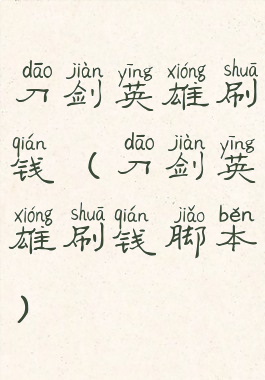 dāo jiàn yīng xióng shuā
刀剑英雄刷
qián dāo jiàn yīng
钱(刀剑英
xióng shuā qián jiǎo běn
雄刷钱脚本
)